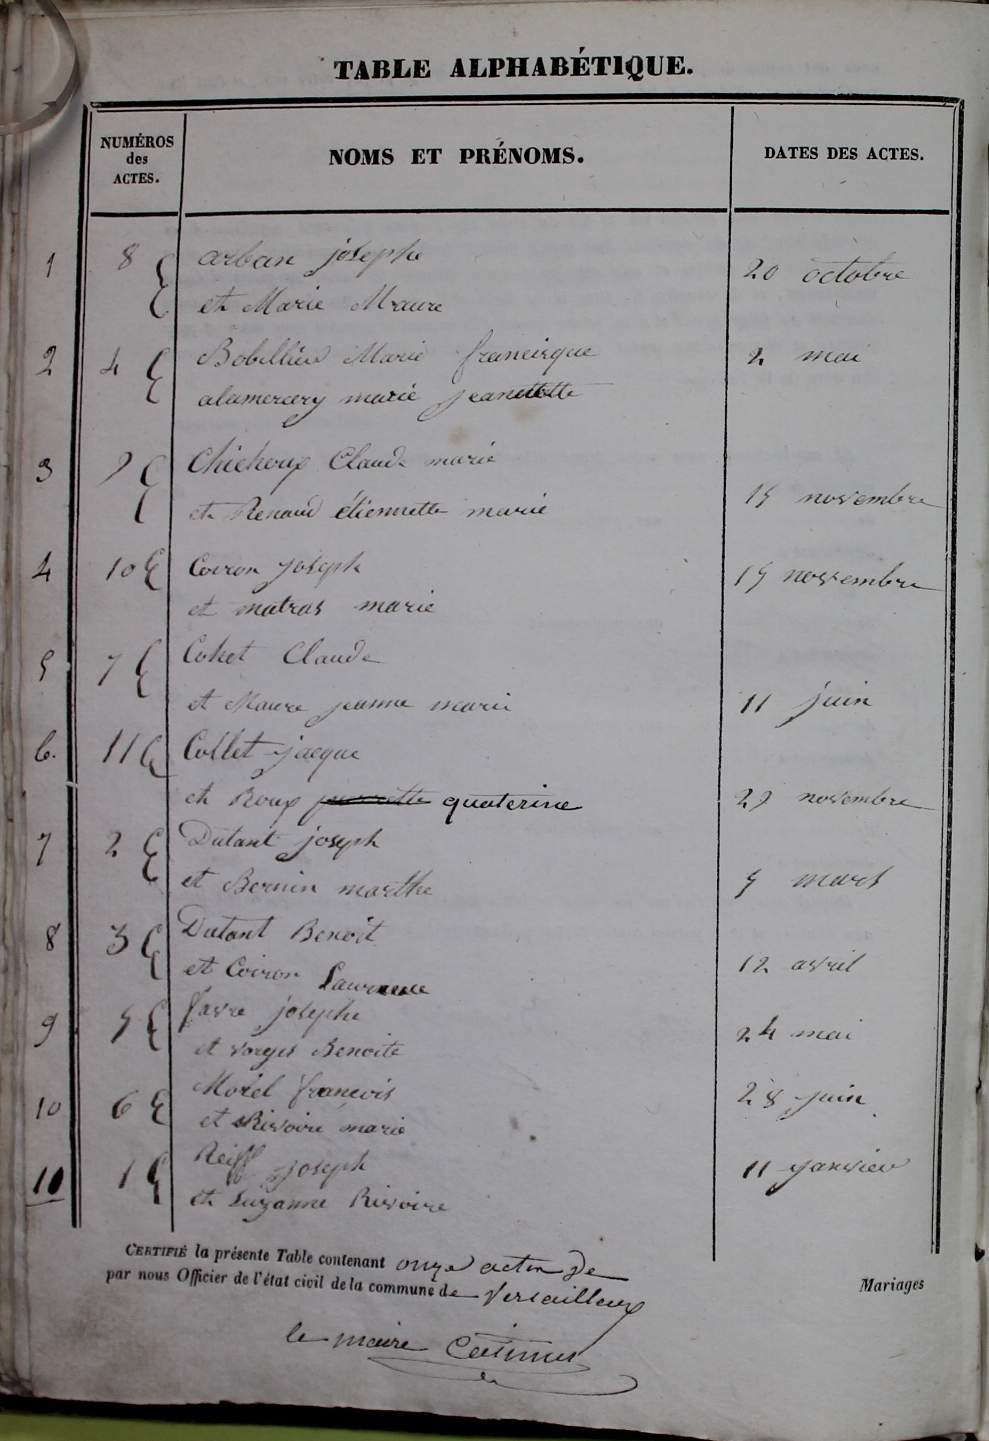 TABLE ALPHABÉTIQUE.
NUMÉROS des ACTES.
NOMS ET PRÉNOMS.
DATES DES ACTES.
1 8 arban josephe
et Marie Maure 20 octobre
2 4 Bobillier Marie francisque 2 mai
alamercery marie jeannette
3 9 Chichoux Claude marie
et Renaud étiennette marie 15 novembre
4 10 Coiron joseph 15 novembre
et matras marie
5 7 Cohet Claude
et Maure jeanne marie 11 juin
6. 11 Collet jacque
et Roux quaterine 29 novembre
7 2 Dutant joseph
et Bernin marthe 5 mars
8 3 Dutant Benoit
et Coiron Laurence 12 avril
9 5 favre josephe
et vorges Benoite 24 mai
10 6 Morel francois 28 juin
et Rivoire marie
11 1 Reiff joseph 11 janvier
et Suzanne Rivoire
CERTIFIÉ la présente Table contenant onze actes de
par nous Officier de l'état civil de la commune de Versailleux
Mariages
le maire